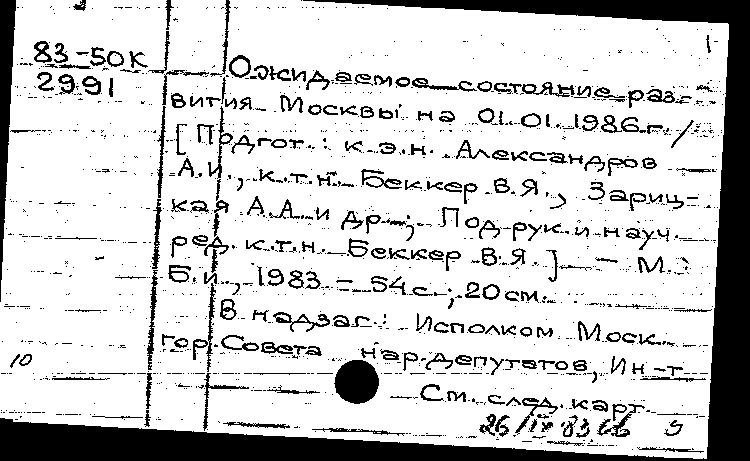 1
83-50К
2991
Ожидаемое состояние раз-
вития Москвы на 01.01.1986г. /
[Подгот.: к.э.н. Александров
А.И., к.т.н. Беккер В.Я., Зариц-
кая А.А. и др.; Под рук. и науч.
ред. к.т.н. Беккер В.Я.] - М.:
Б.и., 1983 - 54с.; 20см.
В надзаг.: Исполком Моск.
гор. Совета нар. депутатов, Ин-т
10
См. след. карт.
26/IV-83